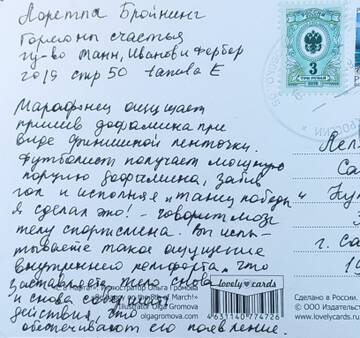 Лоретта Бройнинг
Гормоны счастья
из-во Манн, Иванов и Фербер
2019 стр 50
Марафонец ощущает
прилив дофамина при
виде финишной ленточки.
Футболист получает мощную
порцию дофамина, забив
гол и исполняя „танец победы“
Я сделал это! - говорит мозг
телу спортсмена. Вы испы-
тываете такое ощущение
внутреннего комфорта, что
заставляете тело снова
и снова совершать
действия, что
обеспечивают его появление.
3
ТРИ РУБЛЯ
РОССИИ
г. Са
8th of March!
Illustrator Olga Gromova
olgagromova.com
lovely cards
4 631140 774726
Сделано в России.
© ООО Издательст
www.lovelycards.ru